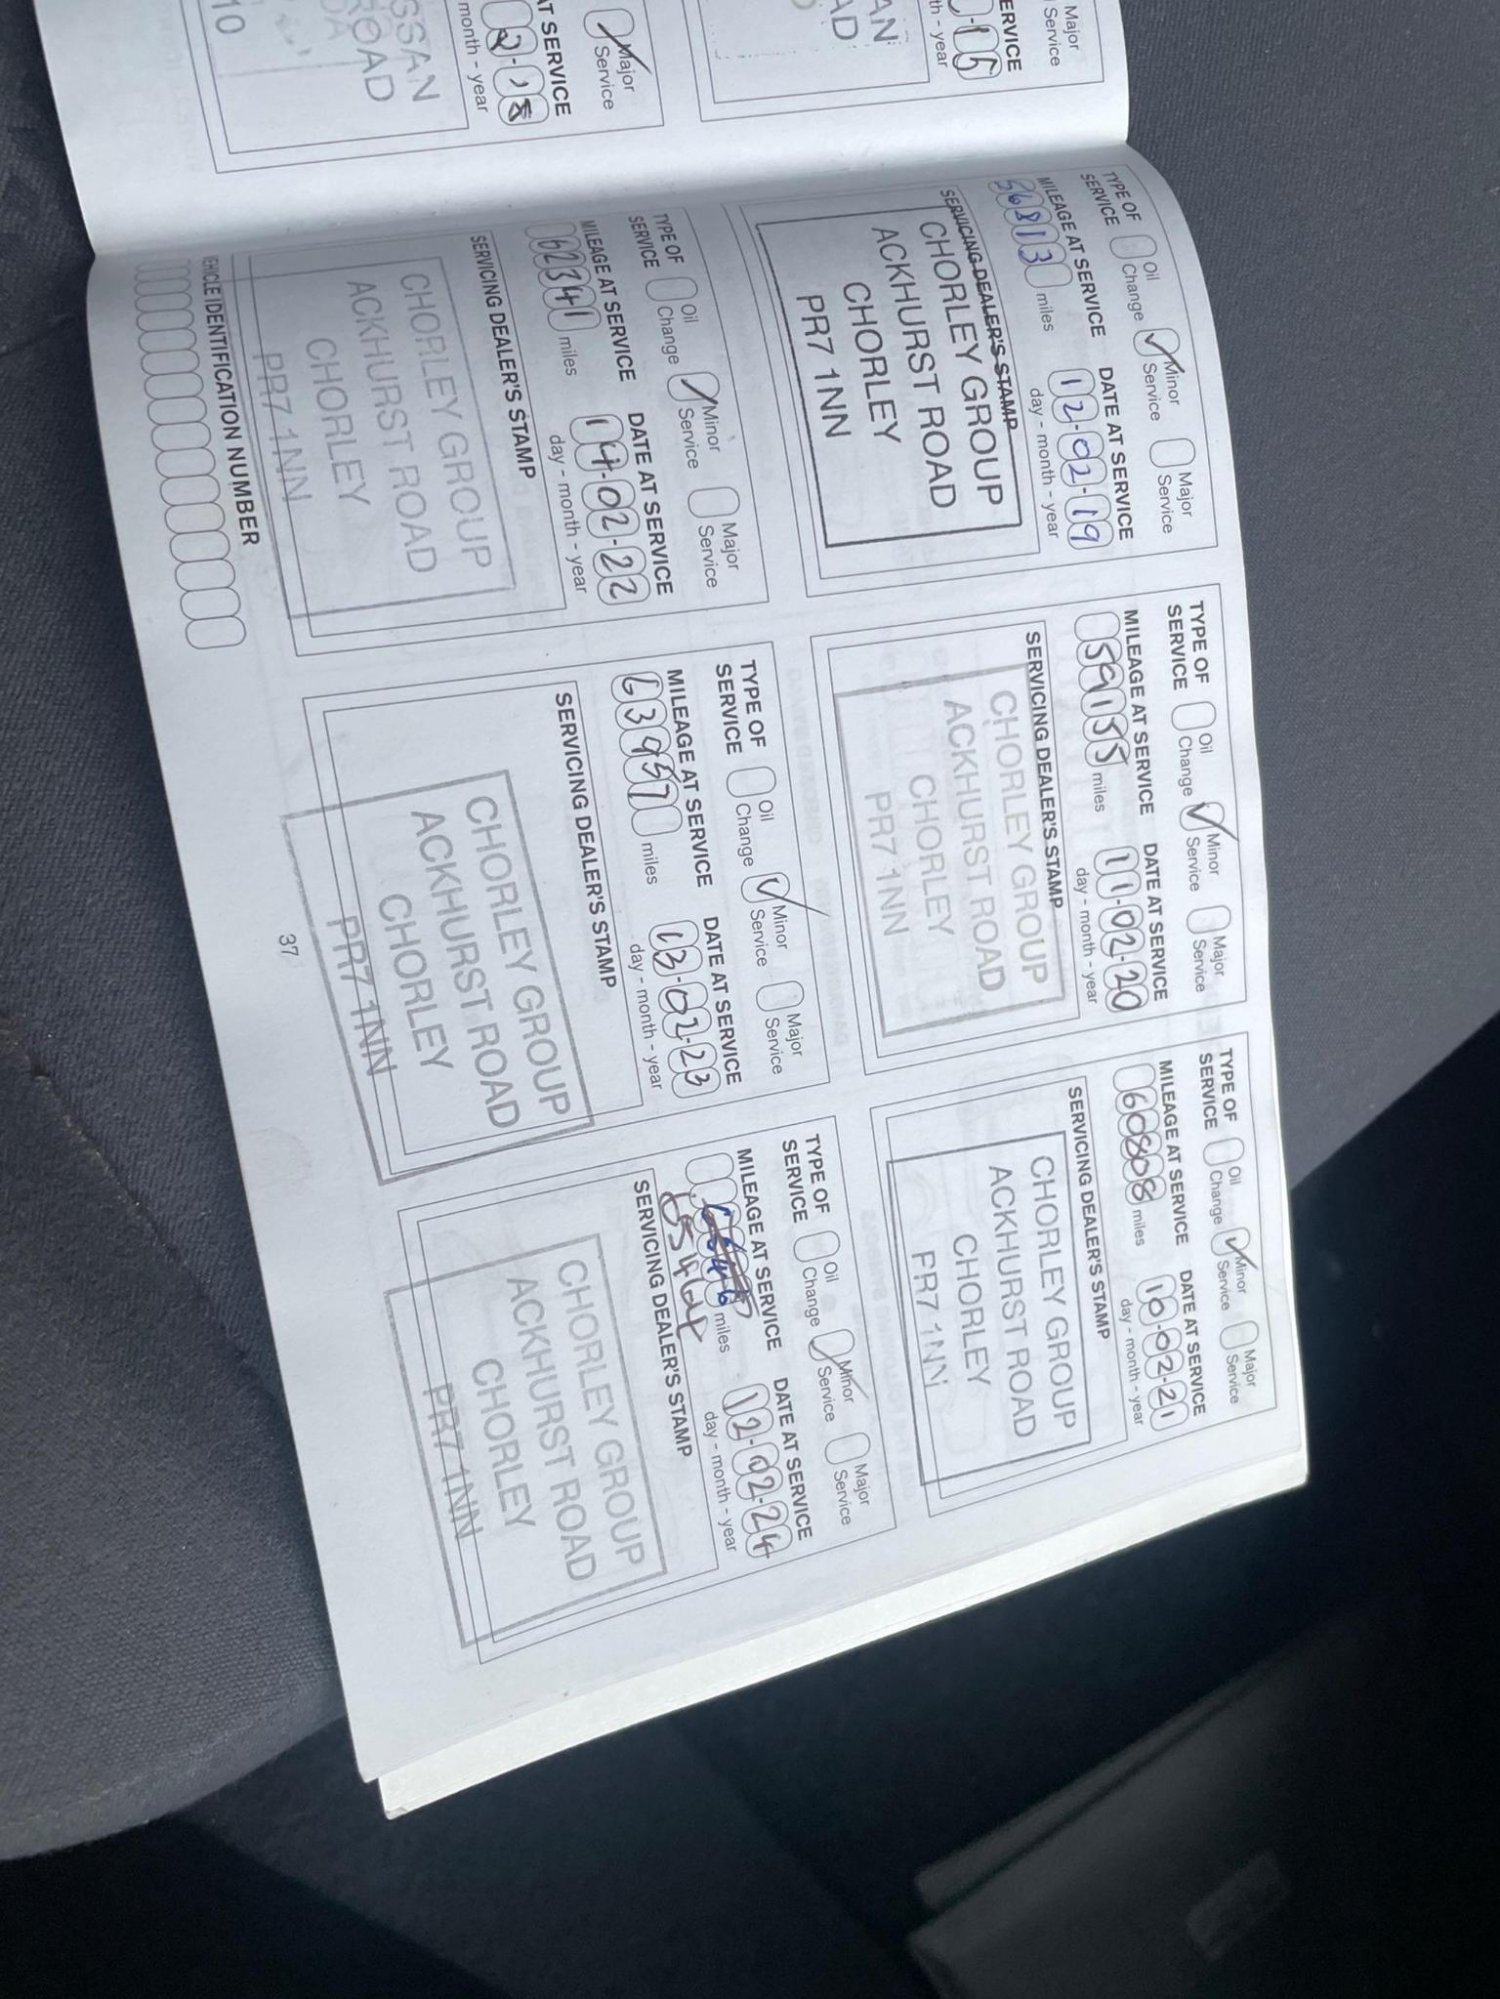 Major
Service
SERVICE
-15
th - year
AN
AD
Major
Service
AT SERVICE
02-18
month - year
SSAN
ROAD
10
TYPE OF
SERVICE
Oil
Change
Minor
Service
Major
Service
MILEAGE AT SERVICE
56813 miles
DATE AT SERVICE
12-02-19
day - month - year
SERVICING DEALER'S STAMP
CHORLEY GROUP
ACKHURST ROAD
CHORLEY
PR7 1NN
TYPE OF
SERVICE
Oil
Change
Minor
Service
Major
Service
MILEAGE AT SERVICE
59155 miles
DATE AT SERVICE
11-02-20
day - month - year
SERVICING DEALER'S STAMP
CHORLEY GROUP
ACKHURST ROAD
CHORLEY
PR7 1NN
TYPE OF
SERVICE
Oil
Change
Minor
Service
Major
Service
MILEAGE AT SERVICE
60808 miles
DATE AT SERVICE
10-02-21
day - month - year
SERVICING DEALER'S STAMP
CHORLEY GROUP
ACKHURST ROAD
CHORLEY
PR7 1NN
TYPE OF
SERVICE
Oil
Change
Minor
Service
Major
Service
MILEAGE AT SERVICE
62341 miles
DATE AT SERVICE
14-02-22
day - month - year
SERVICING DEALER'S STAMP
CHORLEY GROUP
ACKHURST ROAD
CHORLEY
PR7 1NN
TYPE OF
SERVICE
Oil
Change
Minor
Service
Major
Service
MILEAGE AT SERVICE
63957 miles
DATE AT SERVICE
13-02-23
day - month - year
SERVICING DEALER'S STAMP
CHORLEY GROUP
ACKHURST ROAD
CHORLEY
PR7 1NN
TYPE OF
SERVICE
Oil
Change
Minor
Service
Major
Service
MILEAGE AT SERVICE
miles
DATE AT SERVICE
12-02-24
day - month - year
SERVICING DEALER'S STAMP
CHORLEY GROUP
ACKHURST ROAD
CHORLEY
PR7 1NN
EHICLE IDENTIFICATION NUMBER
37